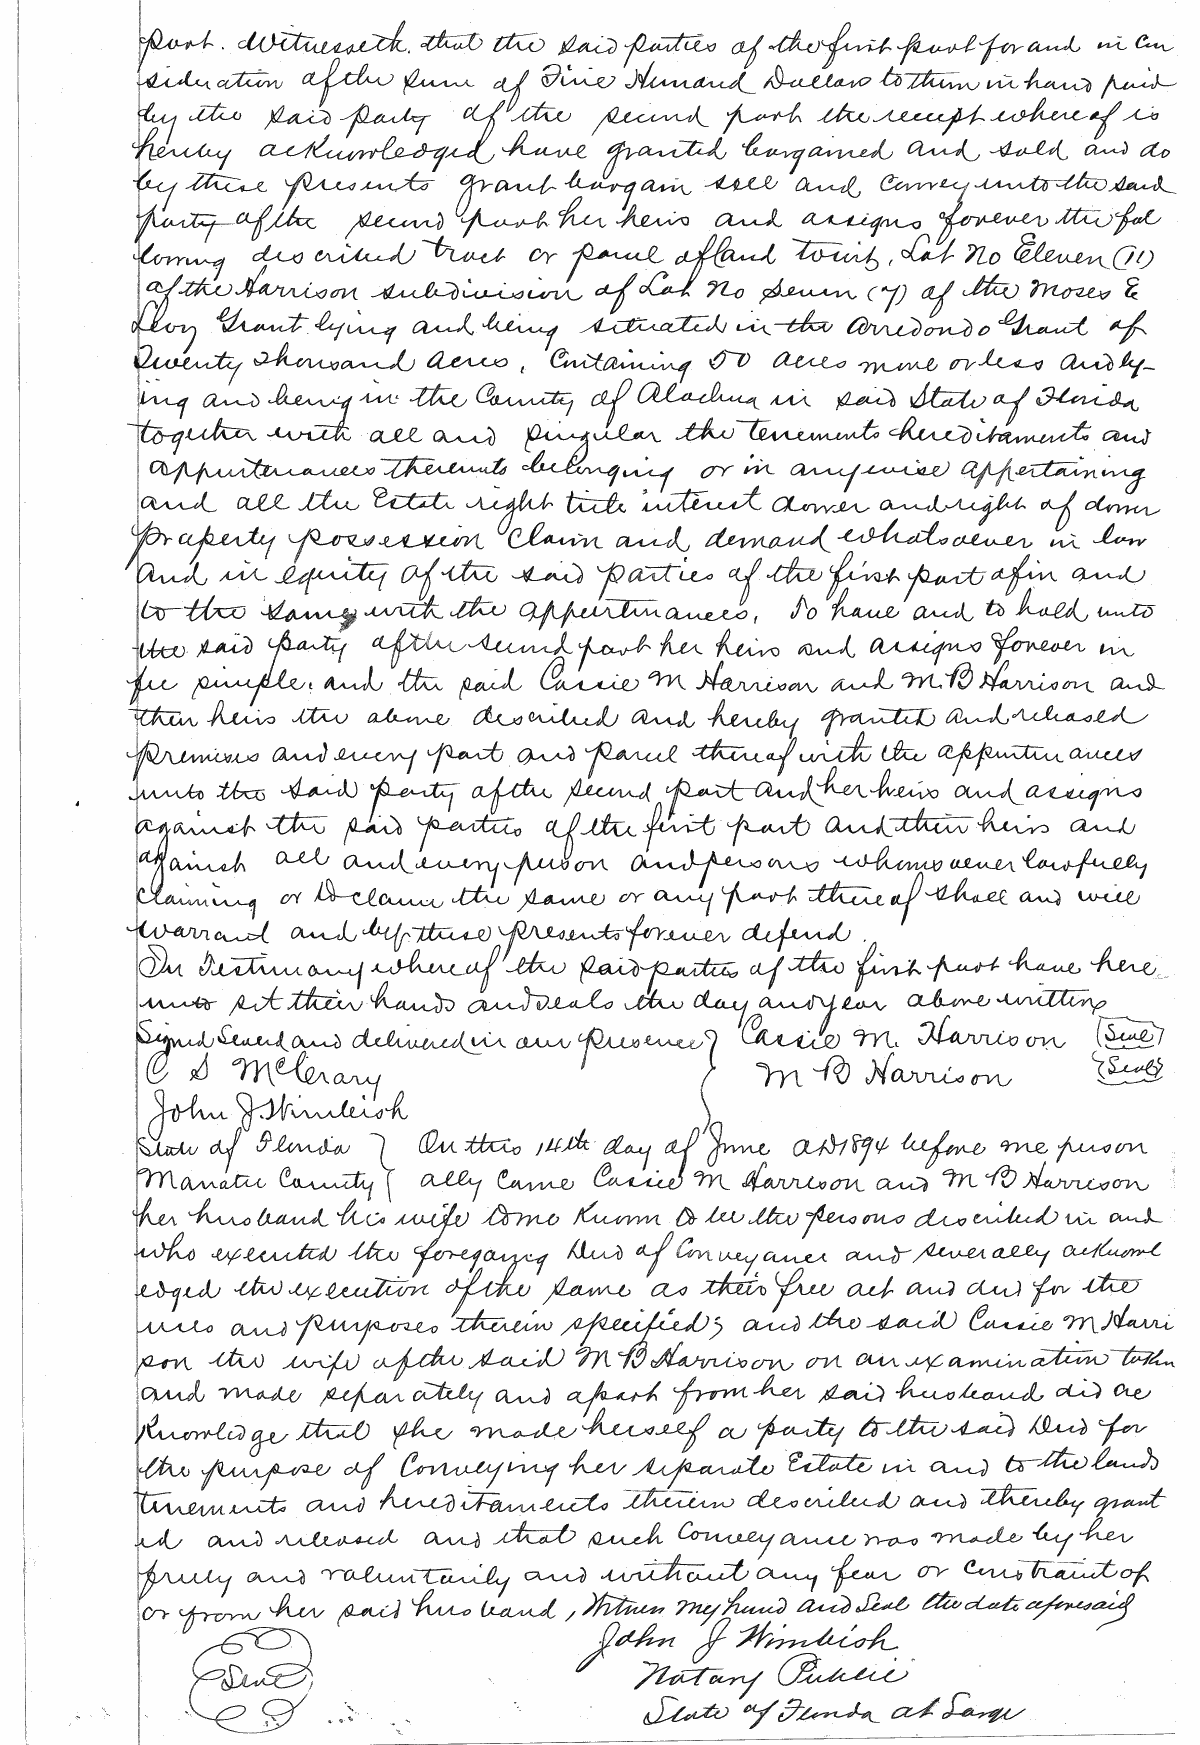 part. Witnesseth. that the said parties of the first part for and in Con
sideration of the sum of Five Hundred Dollars to them in hand paid
by the said party of the second part the receipt whereof is
hereby acknowledged have granted bargained and sold and do
by these presents grant bargain sell and Convey unto the said
party of the second part her heirs and assigns forever the fol
lowing described tract or parcel of land towit, Lot No Eleven (11)
of the Harrison subdivision of Lot No Seven (7) of the Moses E
Levy Grant lying and being situated in the Arredondo Grant of
Twenty Thousand Acres, Containing 50 Acres more or less and ly-
ing and being in the County of Alachua in said State of Florida
together with all and singular the tenements hereditaments and
appurtenances thereunto belonging or in anywise appertaining
and all the Estate right title interest dower and right of dower
property possession Claim and demand whatsoever in law
And in equity of the said parties of the first part of in and
to the same with the appurtenances, To have and to hold unto
the said party of the second part her heirs and assigns forever in
fee simple. and the said Cassie M Harrison and M. B Harrison and
their heirs the above described and hereby granted and released
premises and every part and parcel thereof with the appurtenances
unto the said party of the second part and her heirs and assigns
against the said parties of the first part and their heirs and
against all and every person and persons whomsoever lawfully
claiming or to claim the same or any part thereof shall and will
warrant and by these presents forever defend.
In Testimony whereof the said parties of the first part have here
unto set their hands and seals the day and year above written
Signed Sealed and delivered in our presence } Cassie M. Harrison (Seal)
C S McCrary M B Harrison (Seal)
John J. Wimbish
State of Florida } On this 14th day of June AD 1894 before me person
Manatee County { ally Came Cassie M Harrison and M B Harrison
her husband his wife to me Known to be the persons described in and
who executed the foregoing Deed of Conveyance and severally acknowl
edged the execution of the same as their free act and deed for the
uses and purposes therein specified; and the said Cassie M Harri
son the wife of the said M B Harrison on an examination taken
and made separately and apart from her said husband did ac
Knowledge that she made herself a party to the said Deed for
the purpose of Conveying her separate Estate in and to the lands
tenements and hereditaments therein described and thereby grant
ed and released and that such Conveyance was made by her
freely and voluntarily and without any fear or Constraint of
or from her said husband, Witness my hand and Seal the date aforesaid
John J Wimbish
Seal Notary Public
State of Florida at Large